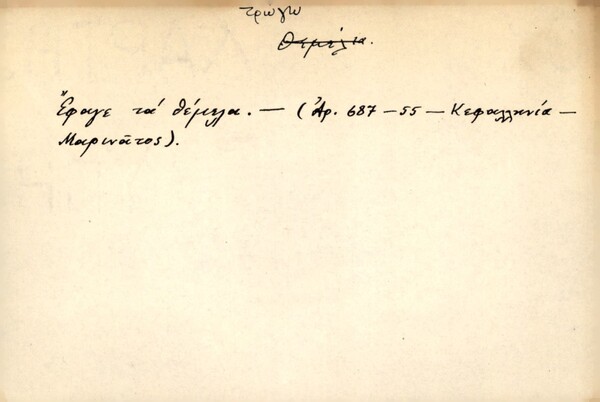 τρώγω
θεμέλια.
Ἔφαγε τά θέμελα. — (Ἀρ. 687 – 55 – Κεφαλληνία –
Μαρινᾶτος).